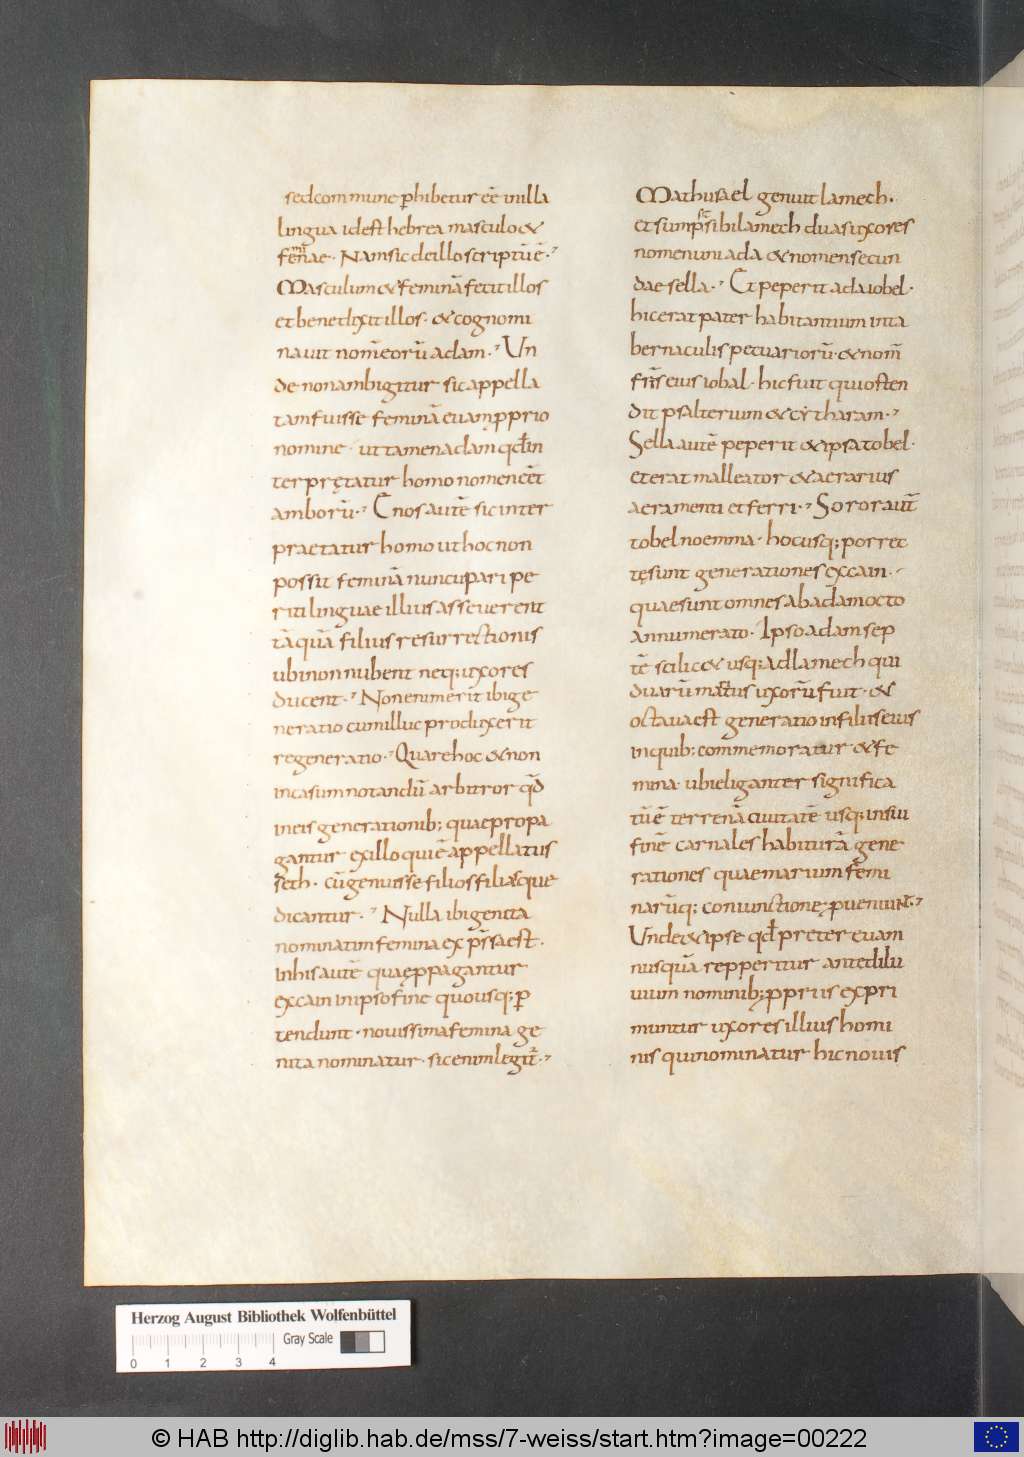 sed commune ꝑhibetur eē̄ in illa
lingua id est hebrea masculo &
feminae. Nam sic de illo scriptū ē.
Masculum & feminā fecit illos
et benedixit illos. & cognomi
nauit nom̄ eorū adam. Un
de non ambigitur sic appella
tam fuisse feminā euam ꝓprio
nomine. ut tamen adam qđ in
terprętatur homo nomen eēt
amborū. Enos autē sic inter
praetatur homo ut hoc non
possit feminā nuncupari pe
riti linguae illius asseuerent
tā quā filius resurrectionis
ubi non nubent neq; uxores
ducent. Non enim erit ibi ge
neratio cum illuc produxerit
regeneratio. Quare hoc & non
in casum notandū arbitror qđ
in eis generationib; quae propa
gantur ex illo qui ē appellatus
seth. cū genuisse filios filiasque
dicantur. Nulla ibi genita
nominatim femina exp̄ssa est.
In his autē quae ꝓpagantur
ex cain in ipso fine quousq; ꝑ
tendunt. nouissima femina ge
nita nominatur. sic enim legit̄.
Mathusael genuit lamech.
et sumpsit sibi lamech duas uxores
nomen uni ada & nomen secun
dae sella. Et peperit ada iobel.
hic erat pater habitantium in ta
bernaculis pecuariorū. & nom̄
fr̄is eius iobal. hic fuit qui osten
dit psalterium & cẏtharam.
Sella autē peperit & ipsa tobel.
et erat malleator & aerarius
aeramenti et ferri. Soror aut̄
tobel noemma. hocusq; porrec
tę sunt generationes ex cain.
quae sunt omnes ab adam octo
annumerato. Ipso adam sep
tē scilic& usq; ad lamech qui
duarū maritus uxorū fuit. &
octaua est generatio in filiis eius
in quib; commemoratur & fe
mina. ubi eliganter significa
tū ē terrenā ciuitatē usq; in sui
finē carnales habiturā gene
rationes quae marium femi
narūq; coniunctione ꝓueniunt.
Unde & ipse qđ preter euam
nusquā repperitur ante dilu
uium nominib; ꝓpriis expri
muntur uxores illius homi
nis qui nominatur hic nouis
Herzog August Bibliothek Wolfenbüttel
Gray Scale
0 1 2 3 4
© HAB http://diglib.hab.de/mss/7-weiss/start.htm?image=00222